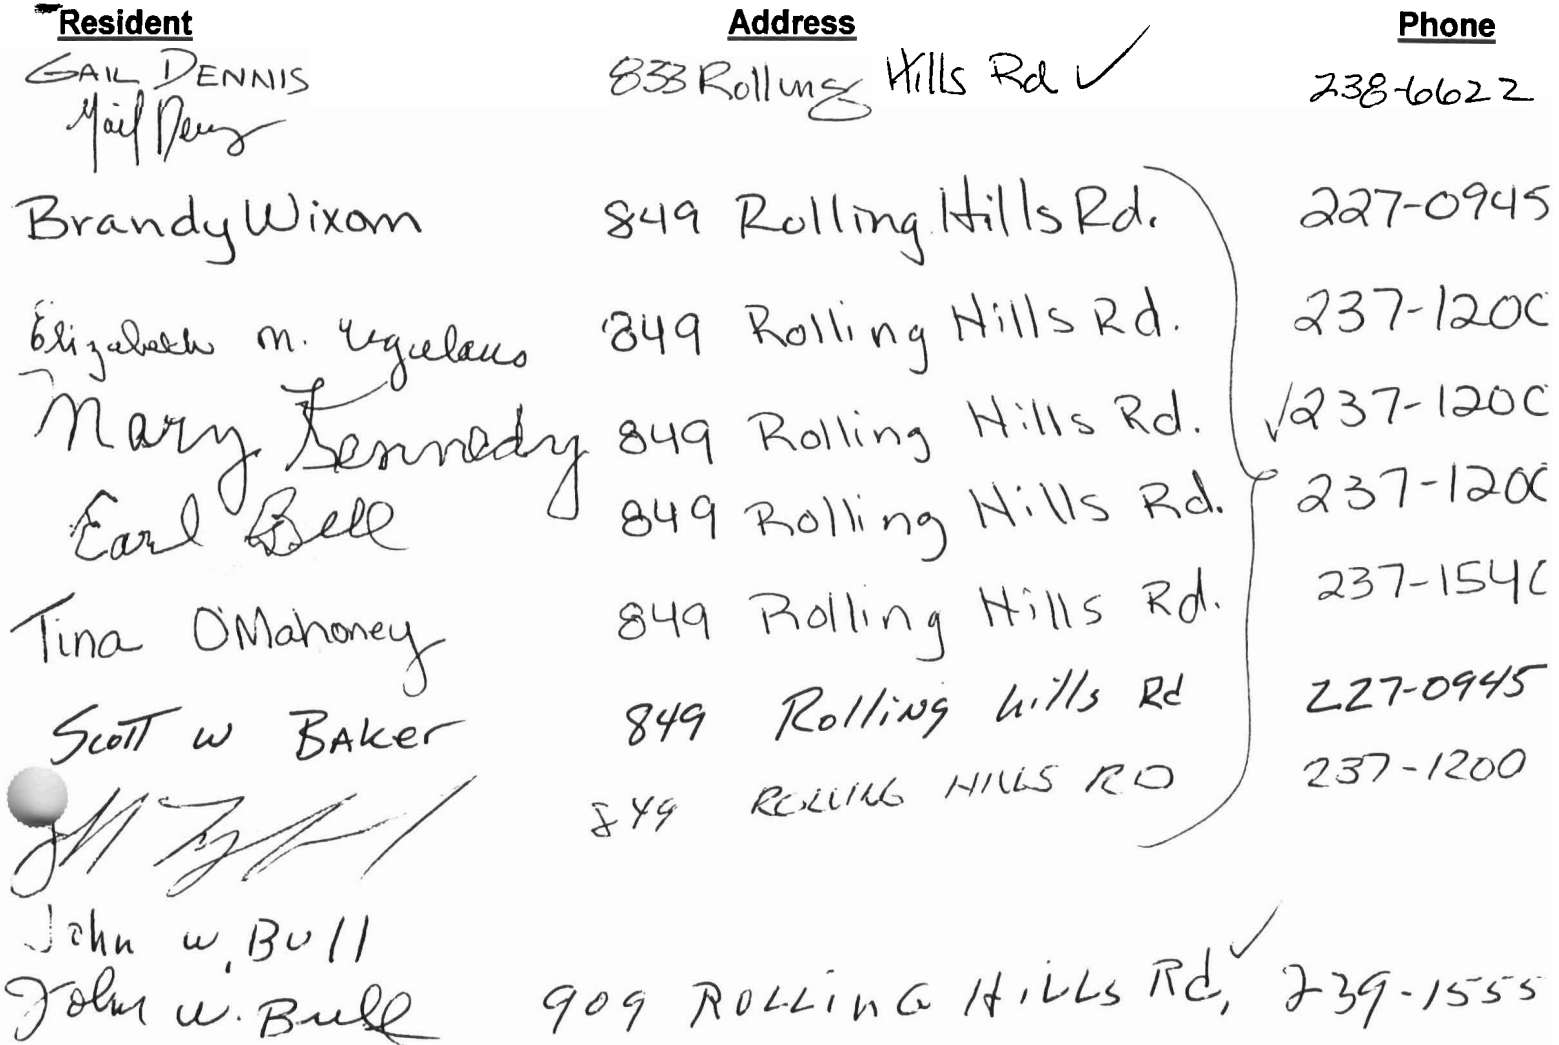 Resident Address Phone
GAIL DENNIS 833 Rolling Hills Rd ✓ 238-6622
Gail Dennis
Brandy Wixom 849 Rolling Hills Rd. 227-0945
Elizabeth M. 849 Rolling Hills Rd. 237-120
Mary Kennedy 849 Rolling Hills Rd. ✓ 237-120
Earl Bell 849 Rolling Hills Rd. 237-120
Tina O'Mahoney 849 Rolling Hills Rd. 237-154
Scott W Baker 849 Rolling hills Rd 227-0945
849 ROLLING HILLS RD 237-1200
John W. Bull
John W. Bull 909 ROLLING HILLS Rd, ✓ 239-1555